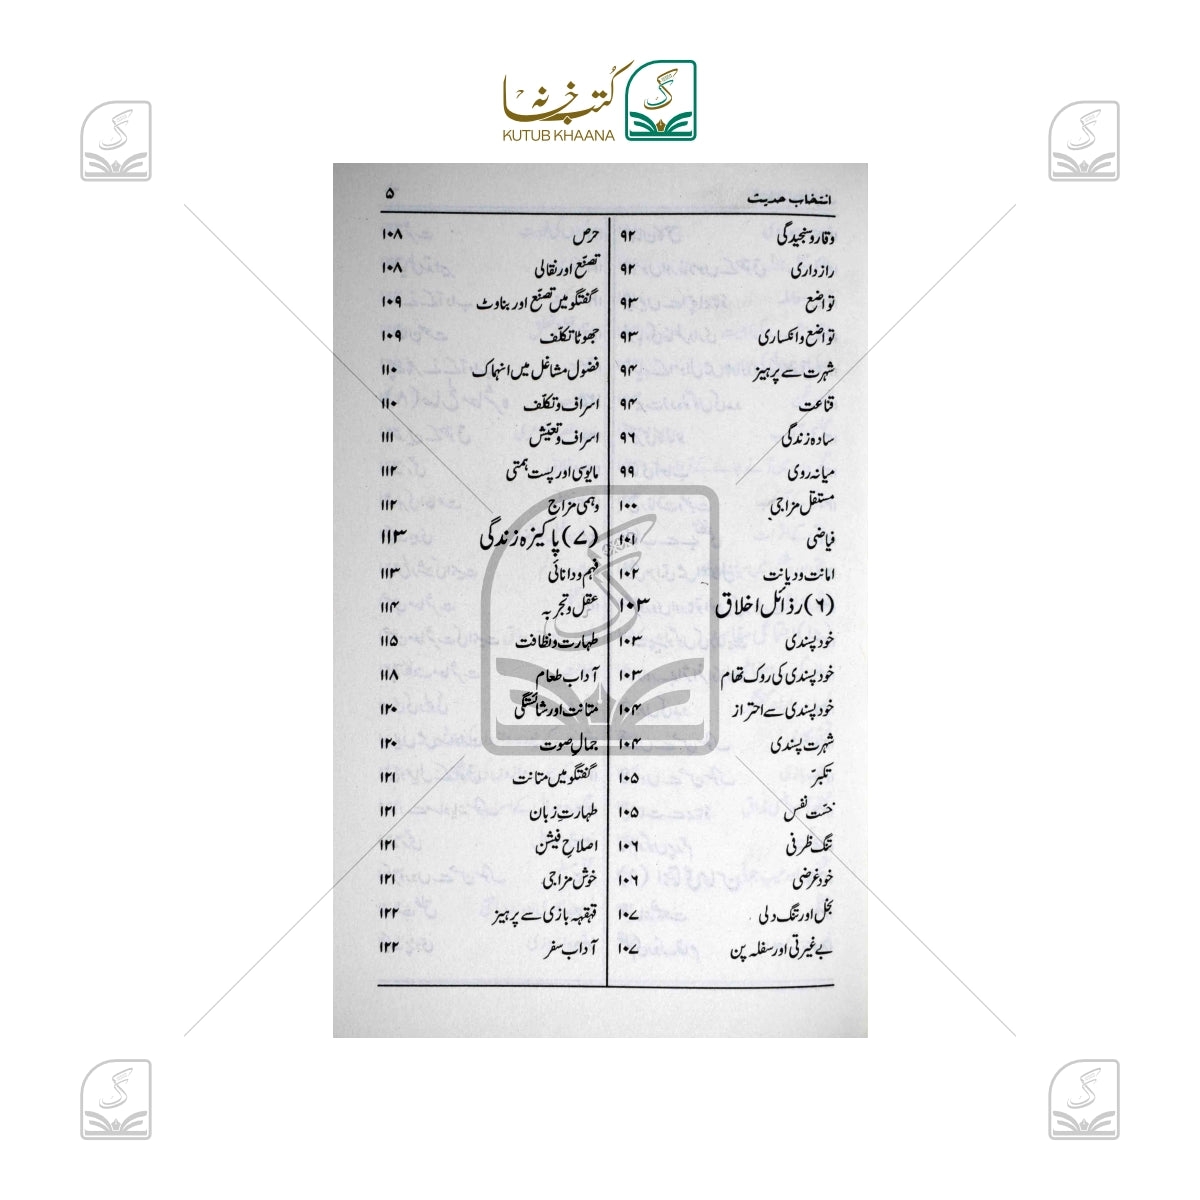 کتب خانہ
KUTUB KHAANA
انتخاب حدیث ۵
وقار و سنجیدگی ۹۲
رازداری ۹۲
تواضع ۹۳
تواضع و انکساری ۹۳
شہرت سے پرہیز ۹۴
قناعت ۹۴
سادہ زندگی ۹۶
میانہ روی ۹۹
مستقل مزاجی ۱۰۰
فیاضی ۱۰۱
امانت و دیانت ۱۰۲
(۶) رذائل اخلاق ۱۰۳
خود پسندی ۱۰۳
خود پسندی کی روک تھام ۱۰۳
خود پسندی سے احتراز ۱۰۴
شہرت پسندی ۱۰۴
تکبّر ۱۰۵
خسّت نفس ۱۰۵
تنگ ظرفی ۱۰۶
خود غرضی ۱۰۶
بخل اور تنگ دلی ۱۰۷
بے غیرتی اور سفلہ پن ۱۰۷
حرص ۱۰۸
تصنّع اور نقالی ۱۰۸
گفتگو میں تصنّع اور بناوٹ ۱۰۹
جھوٹا تکلّف ۱۰۹
فضول مشاغل میں انہماک ۱۱۰
اسراف و تکلّف ۱۱۰
اسراف و تعیّش ۱۱۱
مایوسی اور پست ہمتی ۱۱۲
وہمی مزاج ۱۱۲
(۷) پاکیزہ زندگی ۱۱۳
فہم و دانائی ۱۱۳
عقل و تجربہ ۱۱۴
طہارت و نظافت ۱۱۵
آداب طعام ۱۱۸
متانت اور شائستگی ۱۲۰
جمالِ صوت ۱۲۰
گفتگو میں متانت ۱۲۱
طہارتِ زبان ۱۲۱
اصلاحِ فیشن ۱۲۱
خوش مزاجی ۱۲۱
قہقہہ بازی سے پرہیز ۱۲۲
آداب سفر ۱۲۲